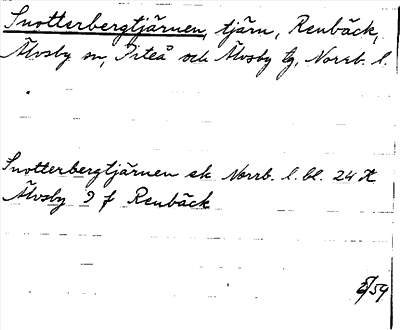 Snotterbergtjärnen, tjärn, Renbäck,
Älvsby sn, Piteå och Älvsby tg, Norrb. l.
Snotterbergtjärnen ek Norrb. l. bl. 24
Älvsby 9 f Renbäck
/59